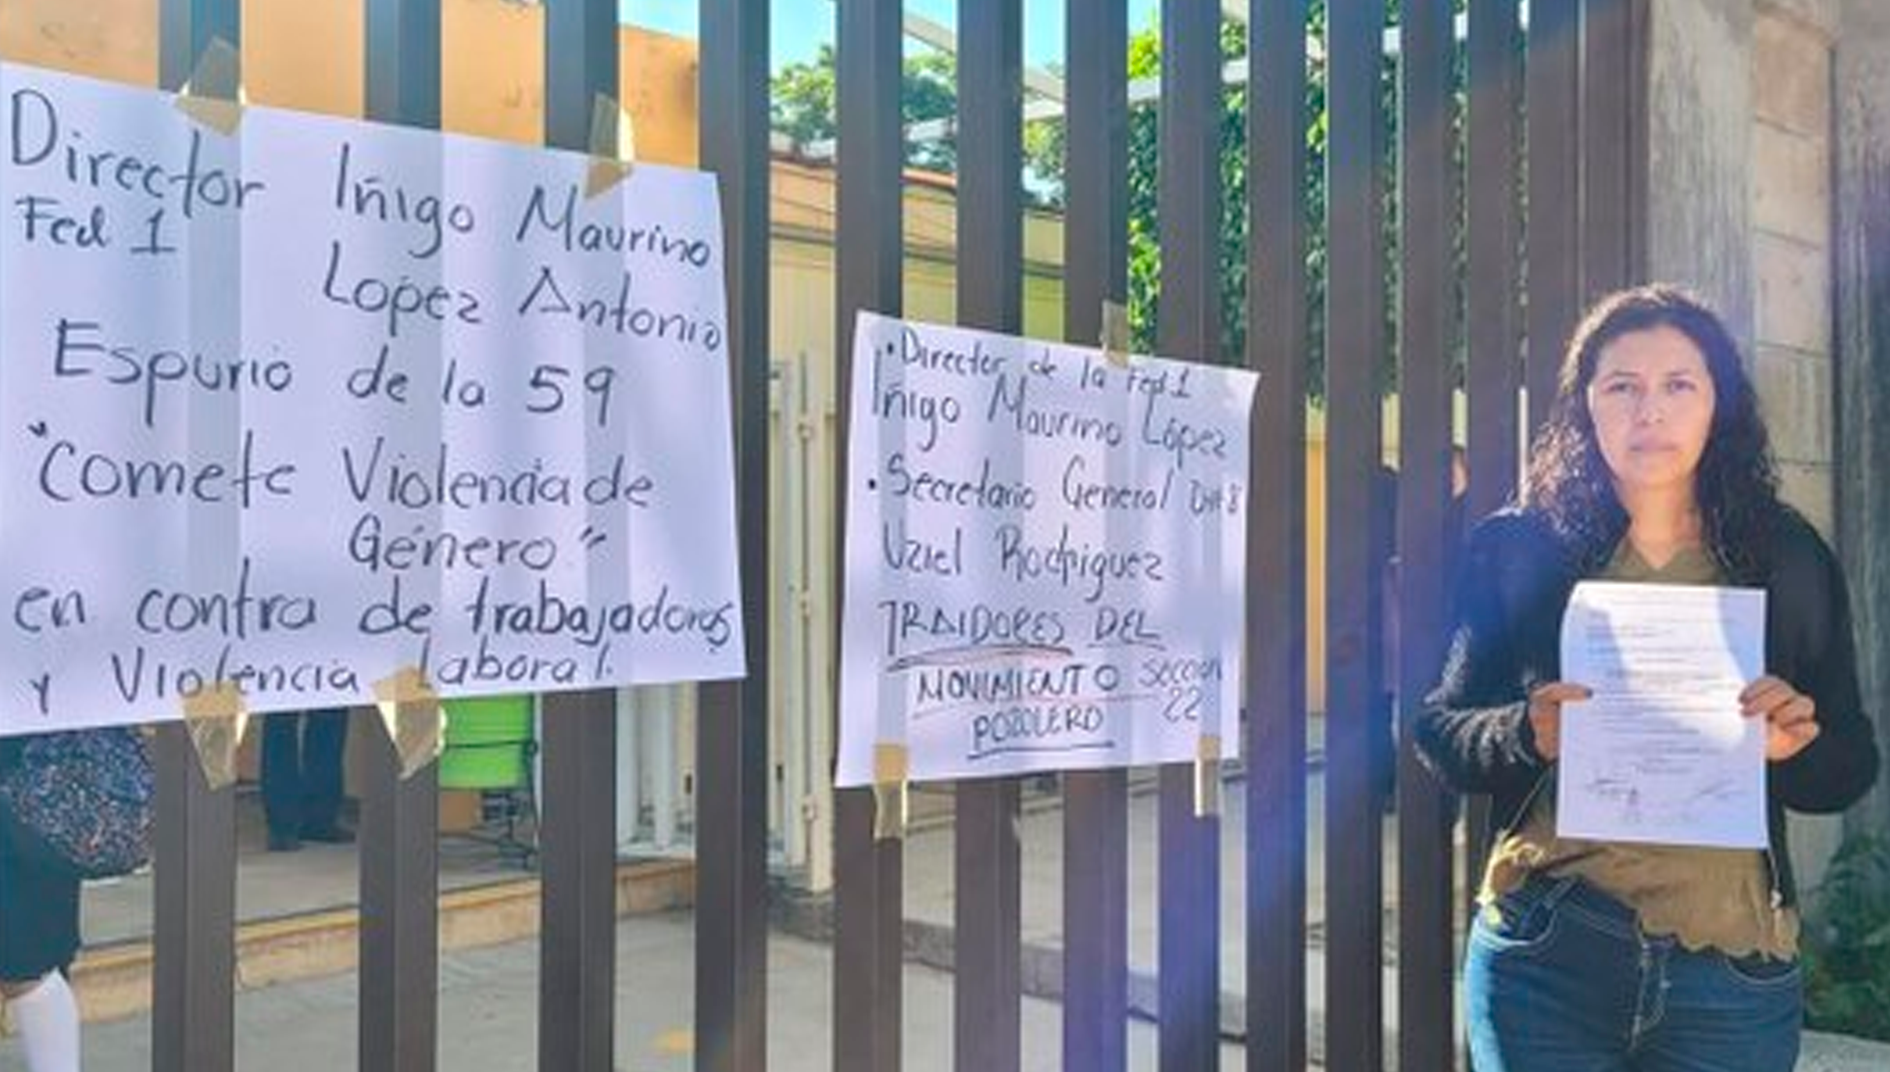 Director Iñigo Maurino
Fed 1 López Antonio
Espurio de la 59
"Comete Violencia de
Género"
en contra de trabajadoras
y Violencia laboral.
• Director de la Fed 1
Iñigo Maurino López
• Secretario General
Uziel Rodriguez
TRAIDORES DEL
MOVIMIENTO Sección
22
POZOLERO